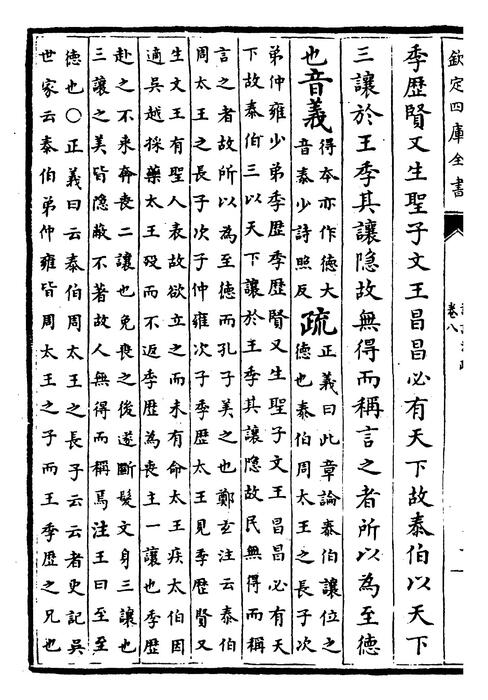 欽定四庫全書
卷八
季歴賢又生聖子文王昌昌必有天下故泰伯以天下
三讓於王季其讓隐故無得而稱言之者所以為至德
也音義
得本亦作德大
音泰少詩照反
疏
正義曰此章論泰伯讓位之
德也泰伯周太王之長子次
弟仲雍少弟季歴季歴賢又生聖子文王昌昌必有天
下故泰伯三以天下讓於王季其讓隐故民無得而稱
言之者故所以為至徳而孔子美之也鄭玄注云泰伯
周太王之長子次子仲雍次子季歴太王見季歴賢又
生文王有聖人表故欲立之而未有命太王疾太伯因
適吳越採藥太王殁而不返季歴為喪主一讓也季歴
赴之不来奔喪二讓也免喪之後遂斷髮文身三讓也
三讓之美皆隐蔽不著故人無得而稱焉注王曰至至
徳也○正義曰云泰伯周太王之長子云云者史記吳
世家云泰伯弟仲雍皆周太王之子而王季歴之兄也